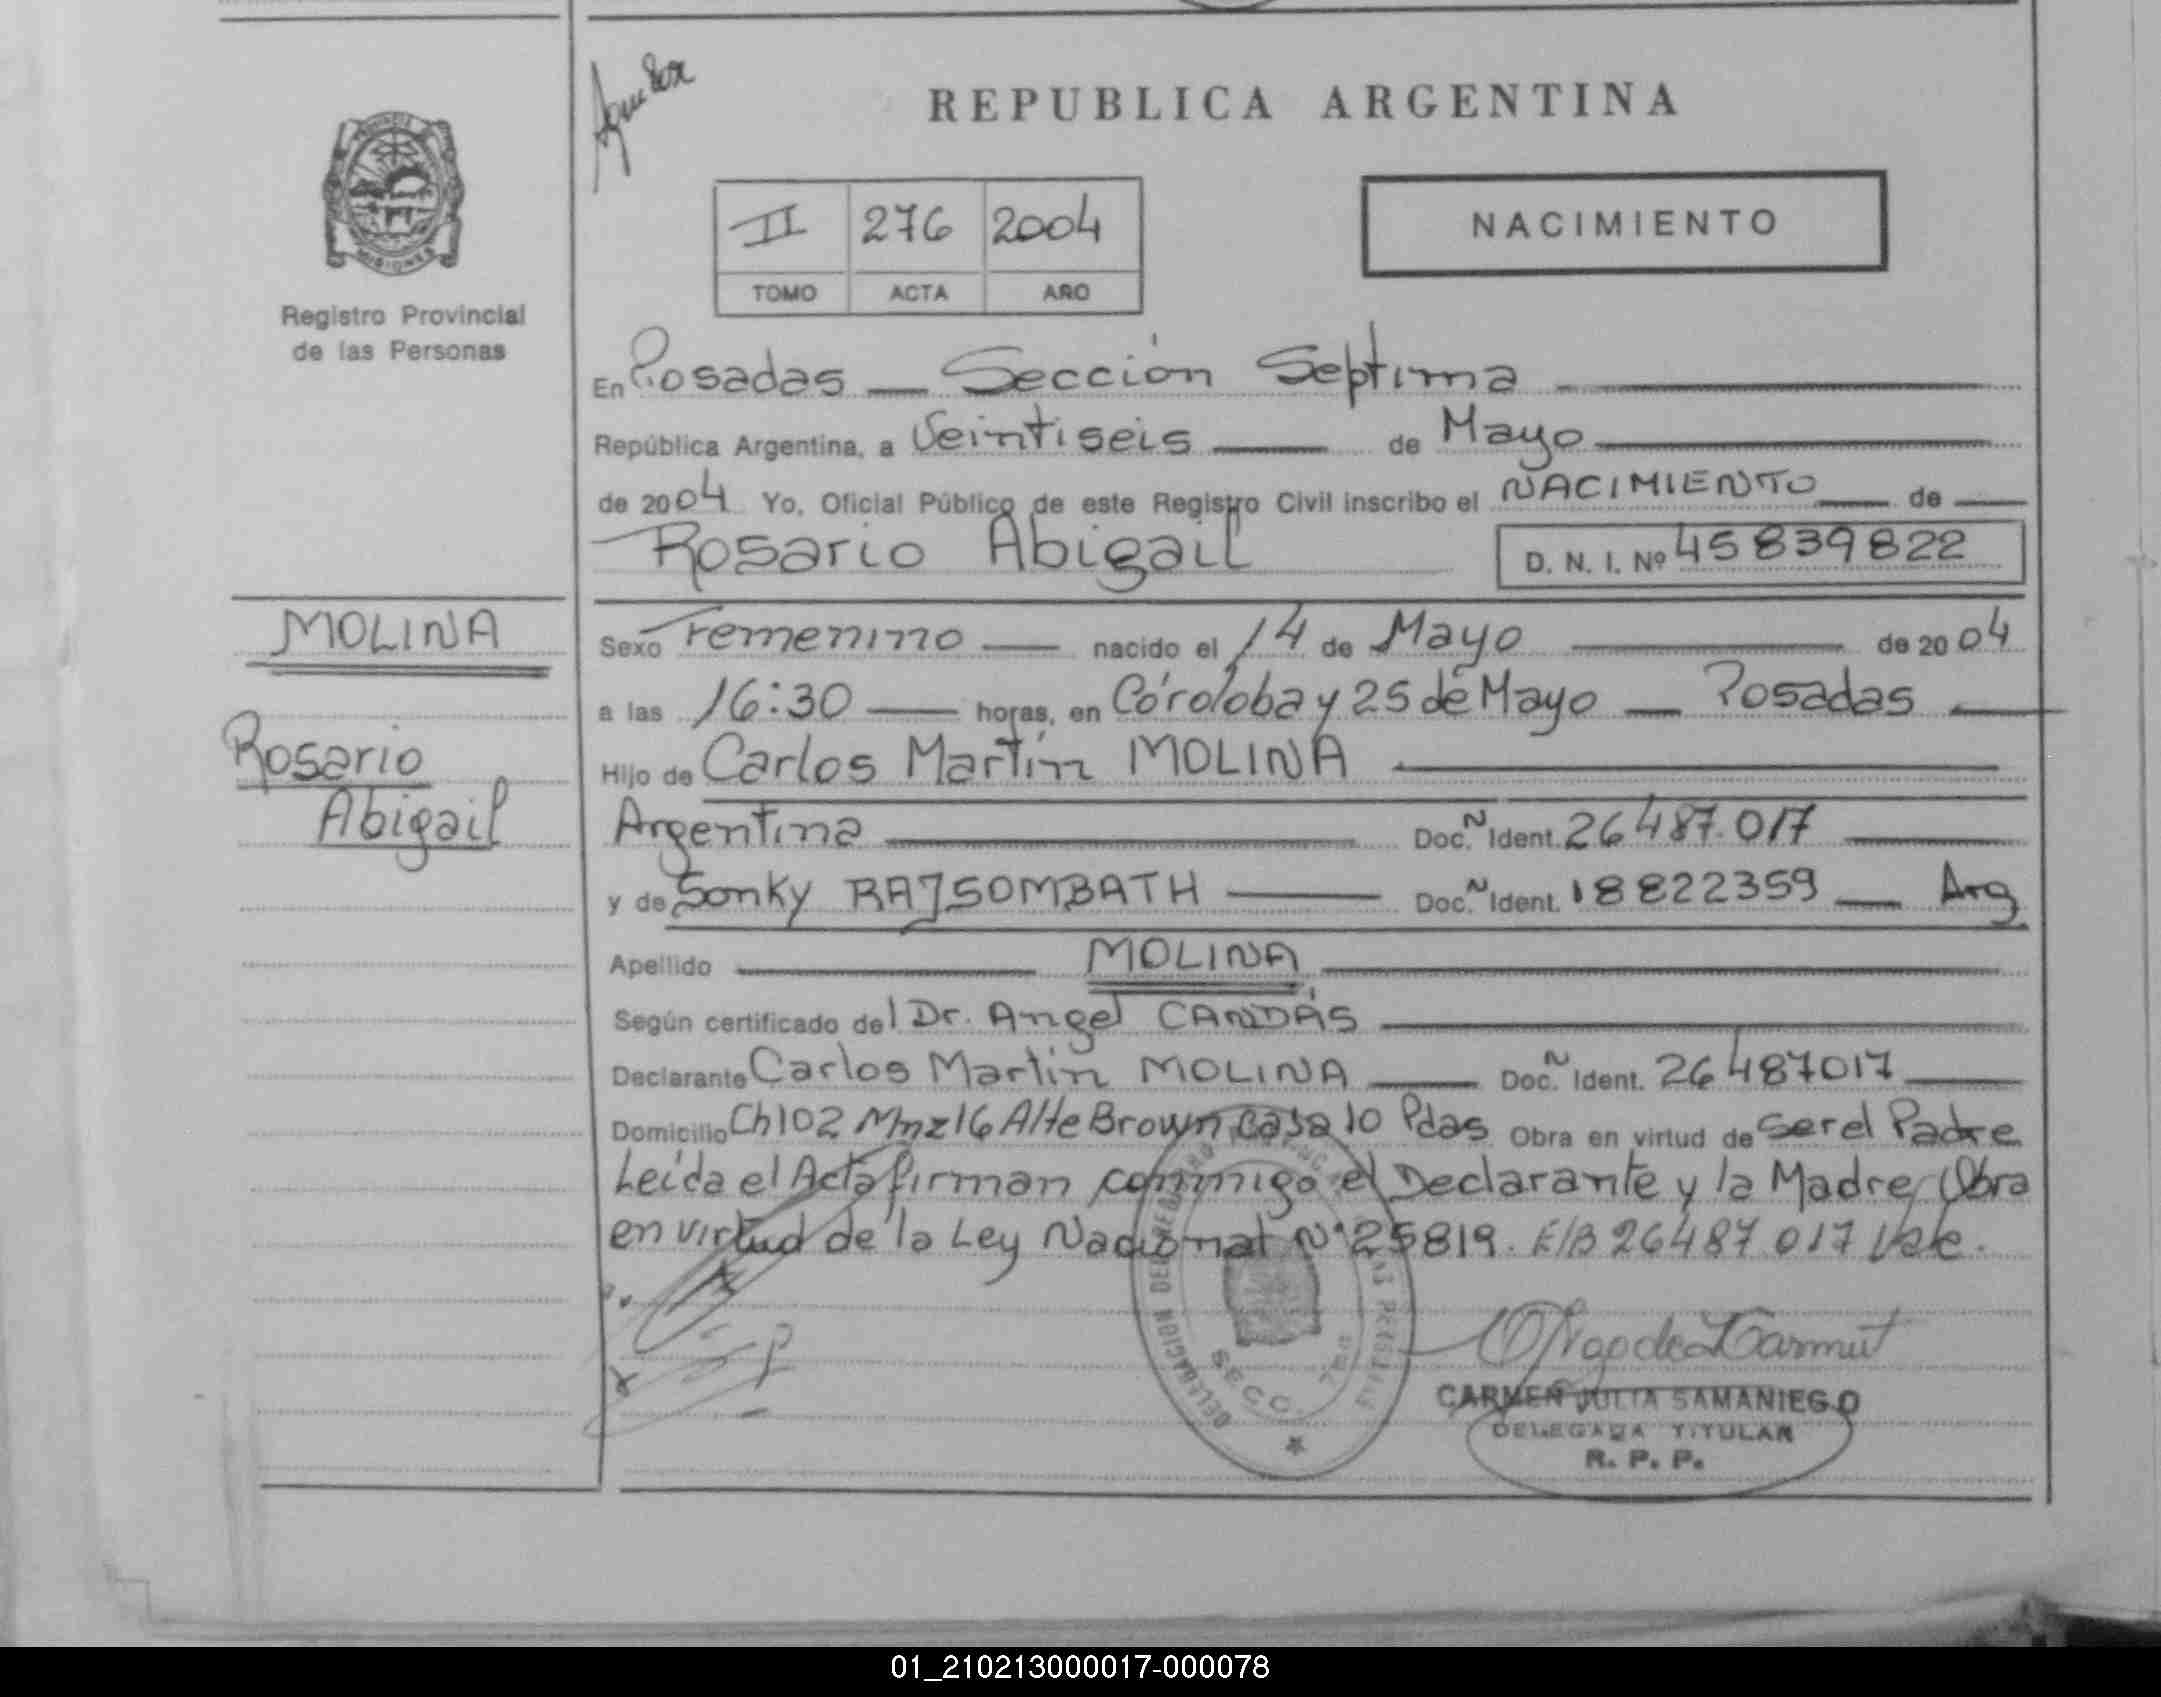 REPUBLICA ARGENTINA
PROVINCIA
MISIONES
Registro Provincial
de las Personas
II 276 2004
TOMO ACTA AÑO
NACIMIENTO
En Posadas — Sección Septima
República Argentina, a Veintiseis — de Mayo
de 2004 Yo, Oficial Público de este Registro Civil inscribo el NACIMIENTO — de —
Rosario Abigail D. N. I. Nº 45839822
MOLINA
Rosario
Abigail
Sexo Femenino — nacido el 14 de Mayo — de 2004
a las 16:30 — horas, en Córdoba y 25 de Mayo — Posadas —
Hijo de Carlos Martín MOLINA
Argentina — Doc. N Ident. 26487.017
y de Sonky RAJSOMBATH — Doc. N Ident. 18822359 — Arg
Apellido — MOLINA
Según certificado del Dr. Angel CANDÁS
Declarante Carlos Martin MOLINA — Doc. N Ident. 26487017
Domicilio Ch102 Mnz16 Alte Brown casa 10 Pdas Obra en virtud de ser el Padre
Leída el Acta firman conmigo el Declarante y la Madre, Obra
en virtud de la Ley Nacional Nº 25819. E/B 26487017 Vale.
DELEGACION
SECC. 7ma
CARMEN JULIA SAMANIEGO
DELEGADA TITULAR
R. P. P.
01_210213000017-000078